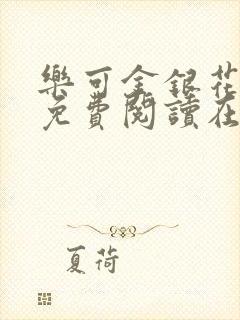 樂可金銀花
免費閱讀在
夏荷